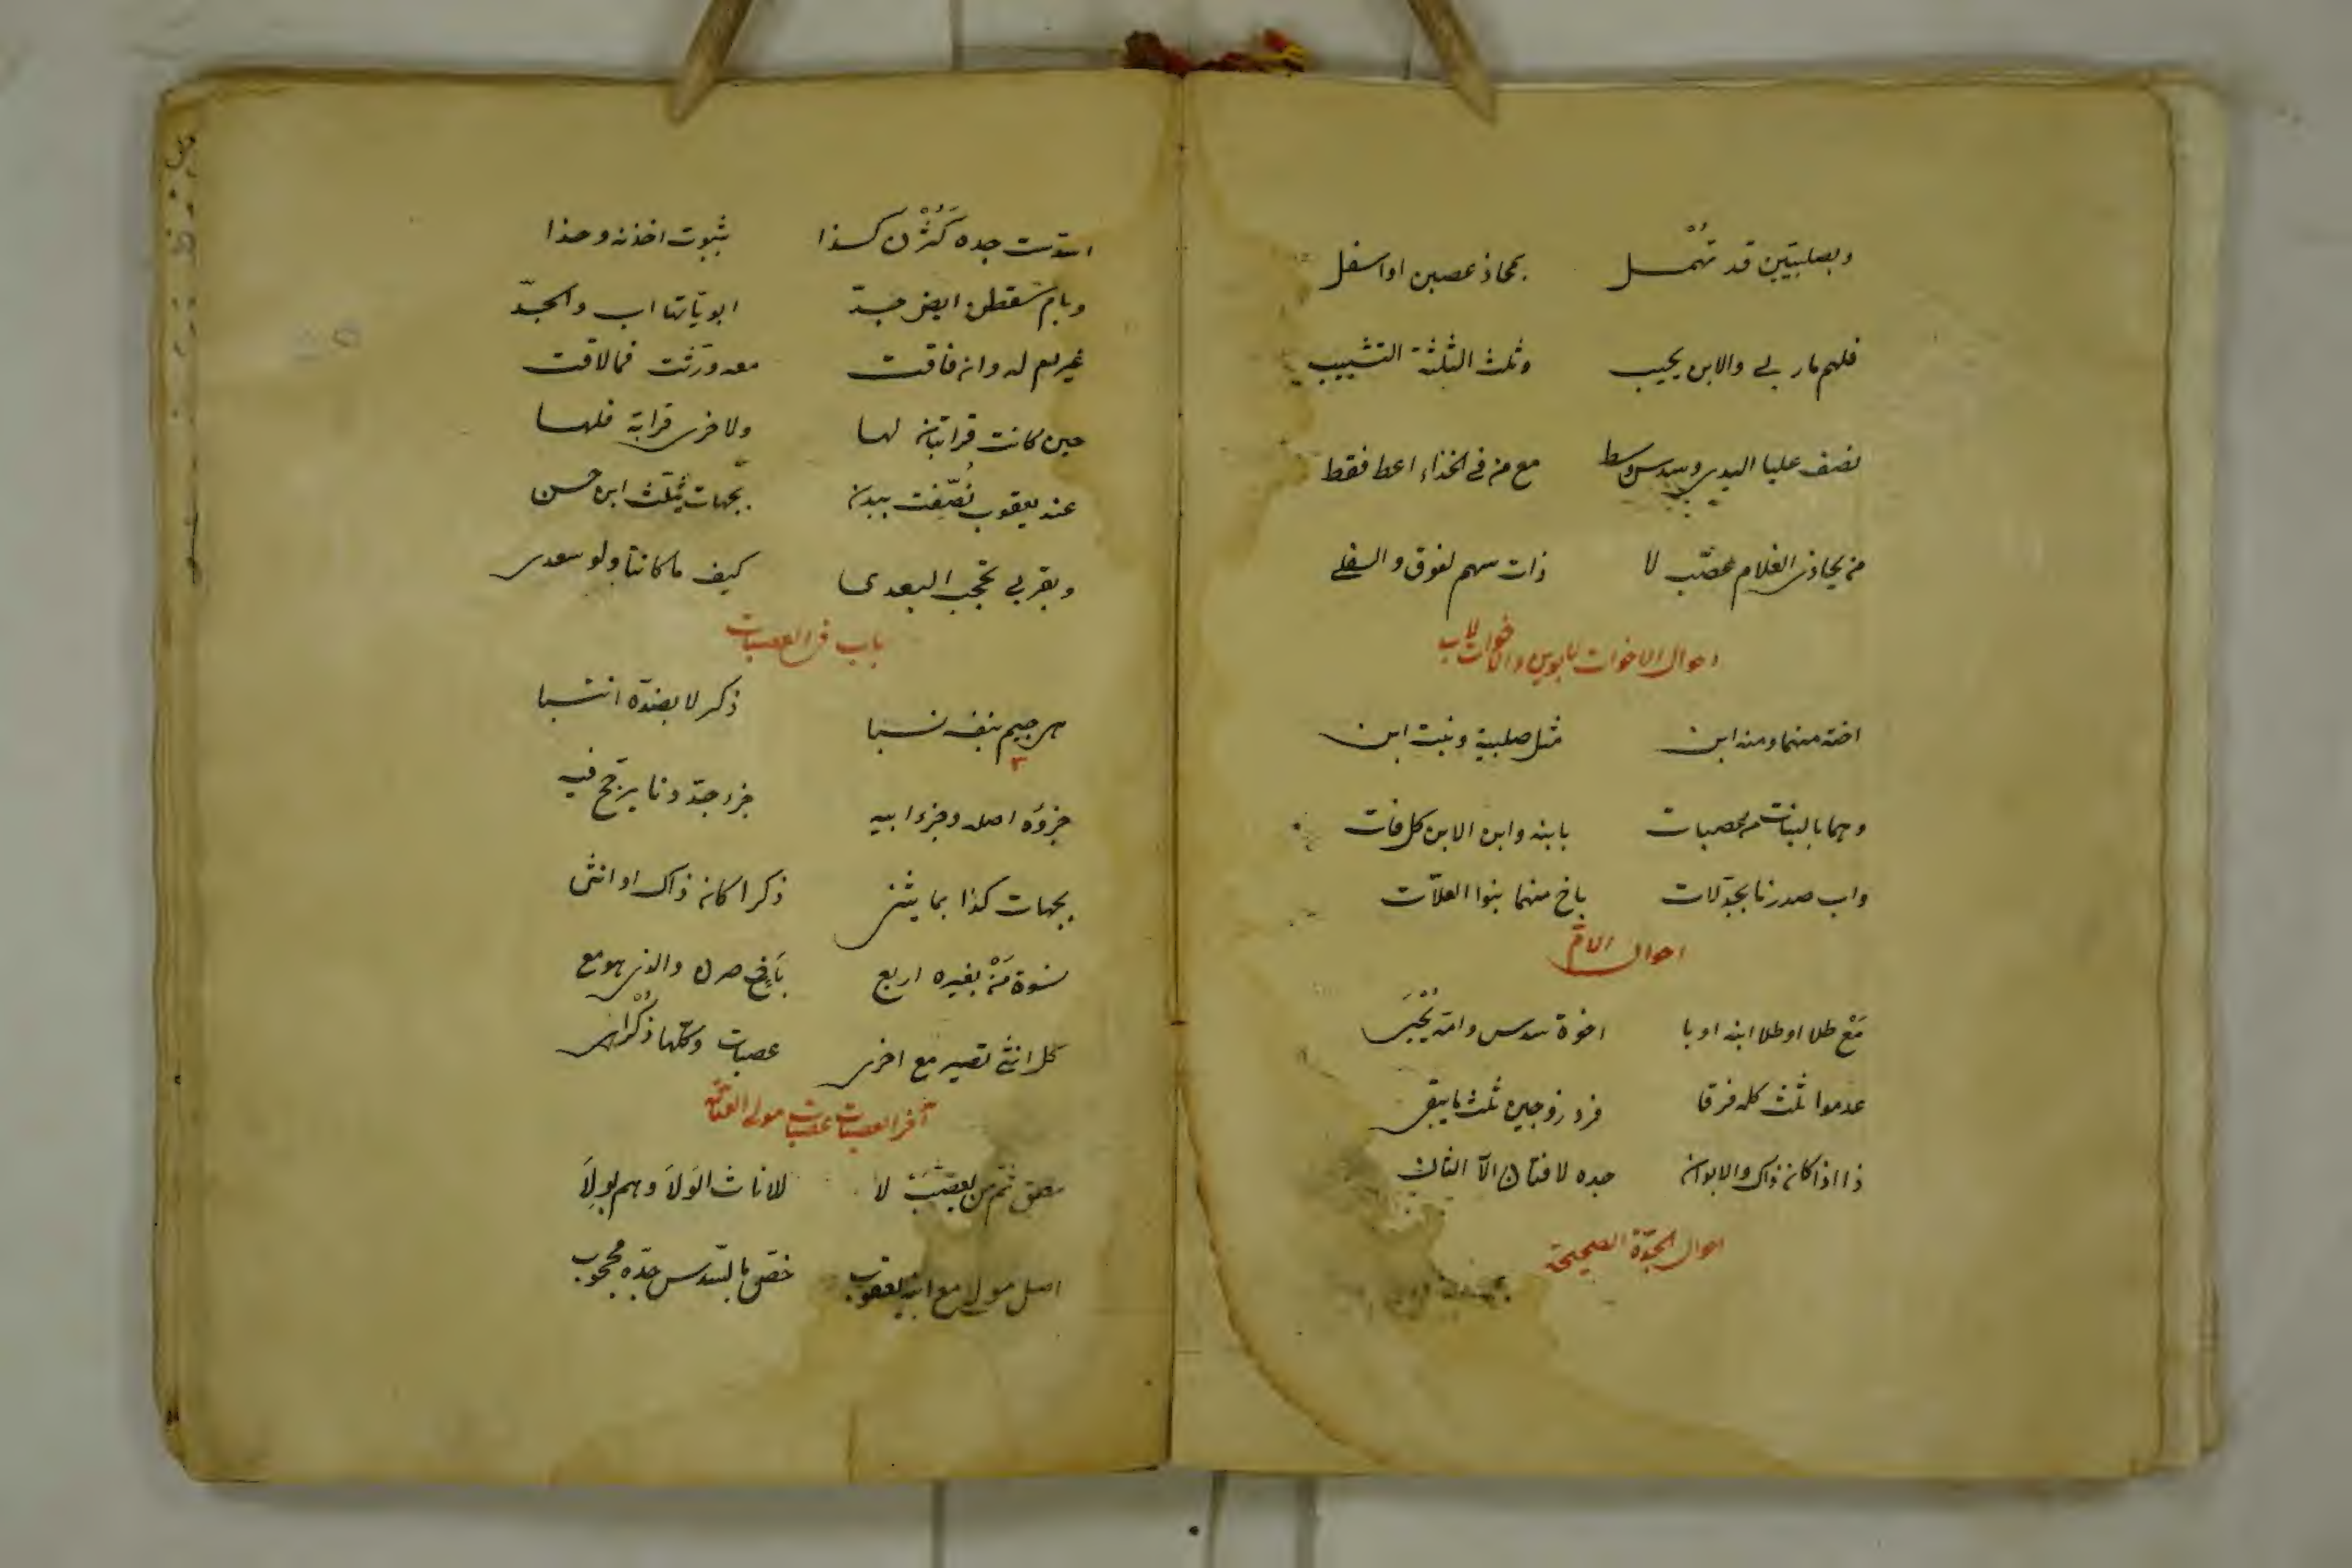 وبصلبيتين قد تهمل بمحاذ عصبن او اسفل
فلهم ما ربى والابن يحيب وثلث الثلثة التشبيب
نصف عليا اليدى وسدس وسط مع من فى الحذاء اعط فقط
من يحاذى الغلام عصب لا ذات سهم لفوق والسفلى
احوال الاخوات لابوين والاخوات لاب
اخته منهما ومنه ابن مثل صلبية وبنت ابن
وهما بالبنات من عصبات بابنه وابن الابن كل فات
واب صدرنا بجد لات باخ منهما بنوا العلات
احوال الام
مع طلا او طلا ابنه او با اخوة سدس وامه يحبى
عدموا ثلث كله فرقا فرد زوجين ثلث ما يبقى
ذا اذا كان ذاك والابوان جده لا فتان الا الثان
احوال الجدة الصحيحة
استوت جده كثرن كذا بثبوت اخذنه وحذا
وبام سقطن ايض جد ابويّاتها اب والجد
غير ام له وان فاقت معه ورثت فما لاقت
حين كانت قرابتان لها ولاخرى قرابة فلها
عند يعقوب نصّفت ببدن بجهات يثلث ابن حسن
وبقربى تحجب البعدى كيف ما كانتا ولو سعدى
باب فى العصبات
هى جيم بنفه نسبا ذكر لا بضدّه انتسبا
جزؤه اصله وجزء ابيه جزء جدّ دنا يرجّح فيه
بجهات كذا بما يثنى ذكرا كان ذاك او انثى
نسوة من بغيره اربع باخ صرن والذى هو مع
كل انثى تصير مع اخرى عصبات وكلها ذكرى
آخر العصبات عصبات مولى العتاقة
معتق ثم من يعصّب لا للاناث الولا وهم لولا
اصل مولى مع ابنه يعقوب خصّ بالسّدس جدّه محجوب